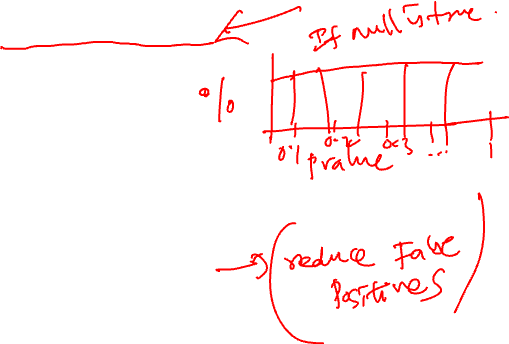 If null is true.
%
0.1 0.2 0.3 ... 1
pvalue
reduce False
Positives